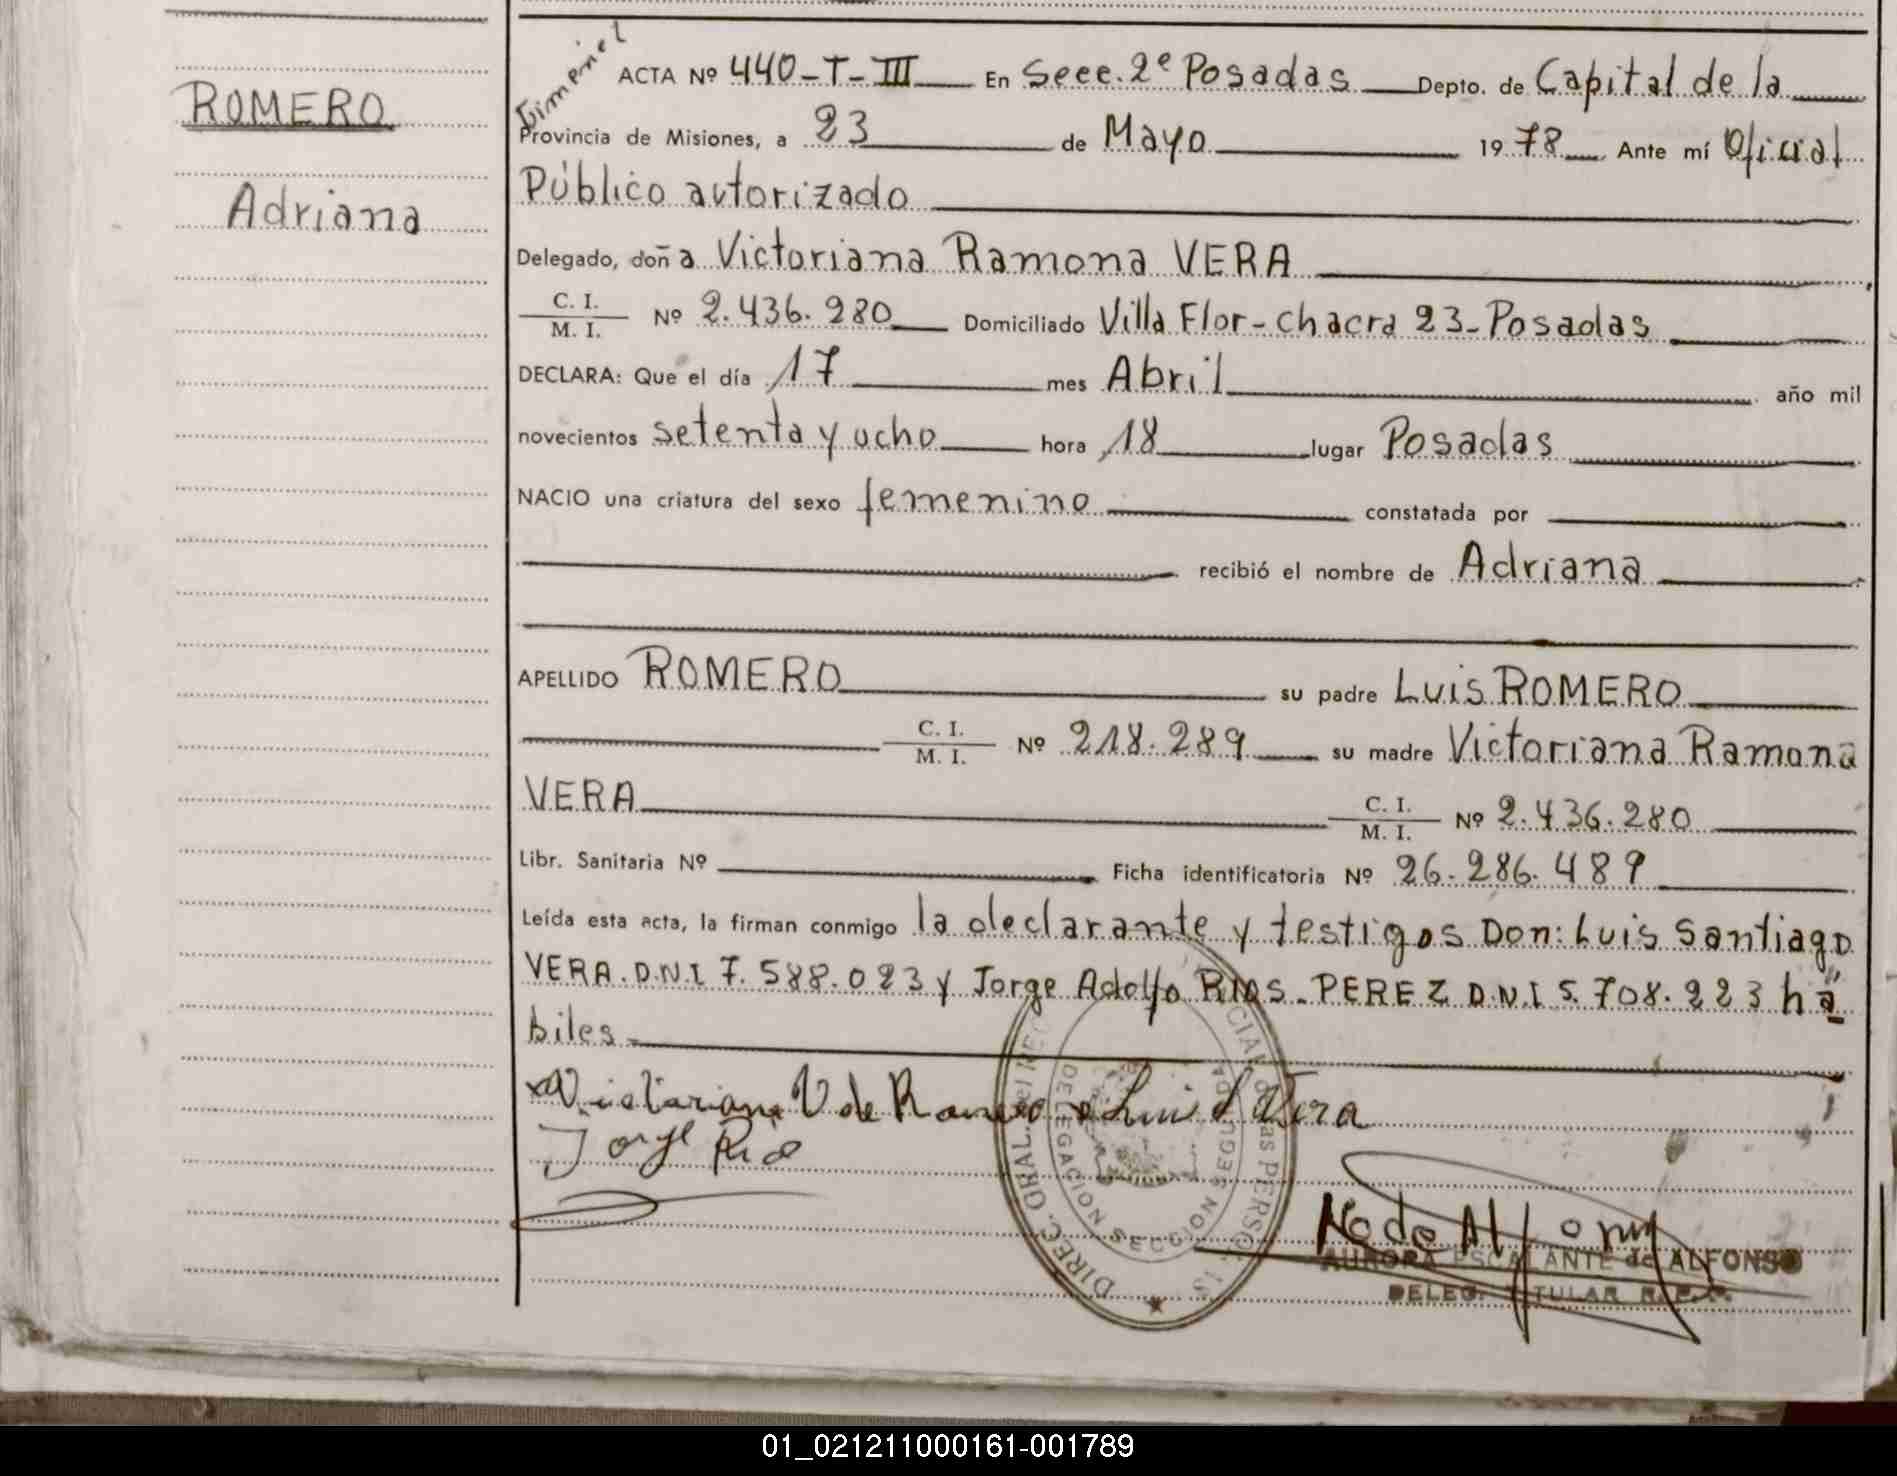 ROMERO
Adriana
ACTA Nº 440-T-III En Secc. 2ª Posadas Depto. de Capital de la
Provincia de Misiones, a 23 de Mayo 1978 Ante mí Oficial
Público autorizado
Delegado, doña Victoriana Ramona VERA
C. I. / M. I. Nº 2.436.280 Domiciliado Villa Flor-chacra 23-Posadas
DECLARA: Que el día 17 mes Abril año mil
novecientos setenta y ocho hora 18 lugar Posadas
NACIO una criatura del sexo femenino constatada por
recibió el nombre de Adriana
APELLIDO ROMERO su padre Luis ROMERO
C. I. / M. I. Nº 218.289 su madre Victoriana Ramona
VERA C. I. / M. I. Nº 2.436.280
Libr. Sanitaria Nº Ficha identificatoria Nº 26.286.489
Leída esta acta, la firman conmigo la declarante y testigos Don: Luis Santiago
VERA. D.N.I 7.588.023 y Jorge Adolfo RIOS-PEREZ D.N.I 5.708.223 há
biles
Victoriana V de Romero Luis S Vera
Jorge Rio
DIREC. GRAL. del REG
DELEGACION SECCION SEGUNDA
AURORA ESCALANTE de ALFONSO
DELEG. TITULAR R.P.P.
01_021211000161-001789